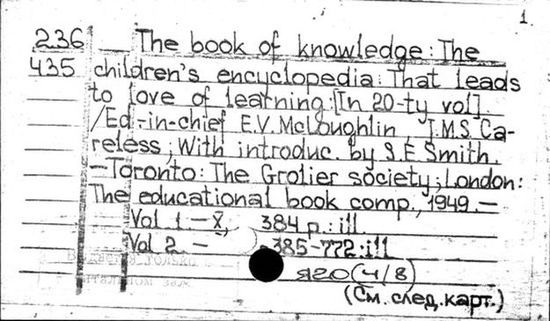 1
236 __ The book of knowledge: The
435 children's encyclopedia: That leads
to love of learning: [In 20-ty vol].
/Ed.-in-chief E.V. McLoughlin, J.M.S. Ca-
reless; With introduc. by S.E. Smith.
—Toronto: The Grolier society; London:
The educational book comp., 1949.—
Vol. 1.—X, 384 p.: ill.
Vol. 2.— 385-772: ill
Я20(4/8)
(См. след. карт.)